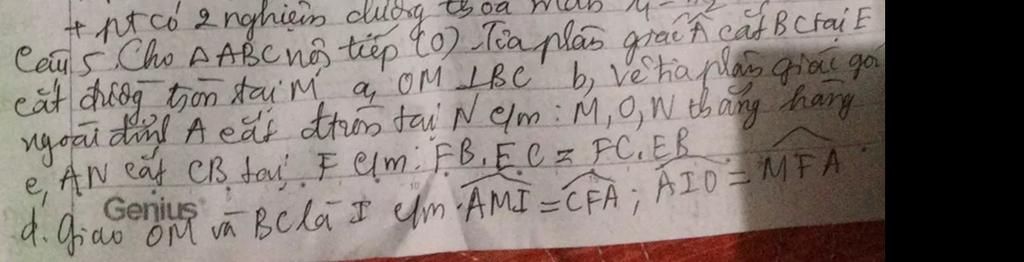 + pt có 2 nghiệm dương thỏa mãn
Câu 5 Cho △ABC nội tiếp (O). Tia phân giác Â cắt BC tại E
cắt đường tròn tại M a, OM ⊥ BC b, Vẽ tia phân giác gó
ngoài đỉnh A cắt đtròn tại N c/m : M, O, N thẳng hàng
c, AN cắt CB tại F c/m : FB. EC = FC. EB
Genius
d. Giao OM và BC là I c/m. AMI = CFA ; AIO = MFA